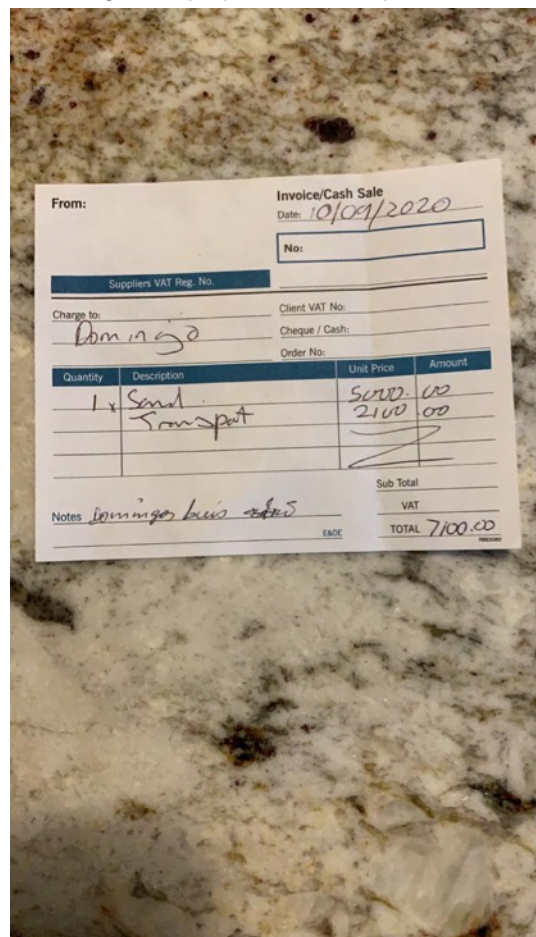 From:
Invoice/Cash Sale
Date: 10/09/2020
No:
Suppliers VAT Reg. No.
Charge to:
Domingo
Client VAT No:
Cheque / Cash:
Order No:
Quantity Description Unit Price Amount
1 x Sand 5000.00
Transpat 2100 00
Sub Total
Notes Domingos
VAT
E&OE
TOTAL 7100.00